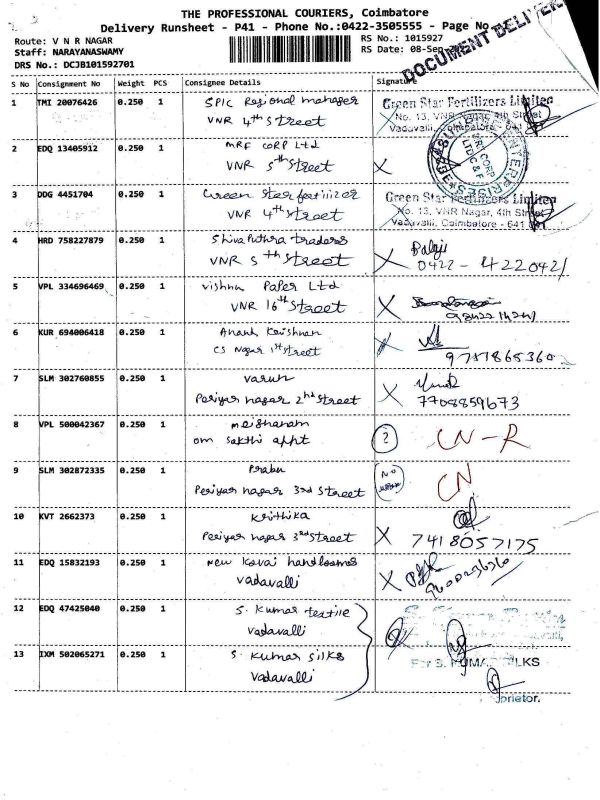 THE PROFESSIONAL COURIERS, Coimbatore
Delivery Runsheet - P41 - Phone No.:0422-3505555 - Page No.
DOCUMENT DELIVER
Route: V N R NAGAR
RS No.: 1015927
Staff: NARAYANASWAMY
RS Date: 08-Sep
DRS No.: DCJB101592701
S No Consignment No Weight PCS Consignee Details Signature
1 TMI 20076426 0.250 1 SPIC Regional manager
VNR 4th Street
Green Star Fertilizers Limited
No. 13, VNR Nagar, 4th Street
Vadavalli, Coimbatore - 641
2 EDQ 13405912 0.250 1 MRF CORP Ltd
VNR 5th Street
ENTERPRISES
MRF CORP
LTD C&F
3 DDG 4451704 0.250 1 Green Star fertilizer
VNR 4th Street
Green Star Fertilizers Limited
No. 13, VNR Nagar, 4th Street
Vadavalli, Coimbatore - 641
4 HRD 758227879 0.250 1 Shivaputhra traders
VNR 5th Street
Balaji
0422 - 4220421
5 VPL 334696469 0.250 1 Vishnu Paper Ltd
VNR 16th Street
6 KUR 694006418 0.250 1 Anand Krishnan
CS Nagar 1st Street
9787865360
7 SLM 302760855 0.250 1 Varun
Periyar nagar 2nd Street
7708859673
8 VPL 500042367 0.250 1
om Sakthi appt
? CN-R
9 SLM 302872335 0.250 1 Prabu
Periyar nagar 3rd Street
NO
CN
10 KVT 2662373 0.250 1 Krithika
Periyar nagar 3rd Street
7418057175
11 EDQ 15832193 0.250 1 New Kovai handlooms
Vadavalli
12 EDQ 47425040 0.250 1 S. Kumar textile
Vadavalli
13 IXM 502065271 0.250 1 S. Kumar Silks
Vadavalli
For S. KUMAR SILKS
Proprietor.